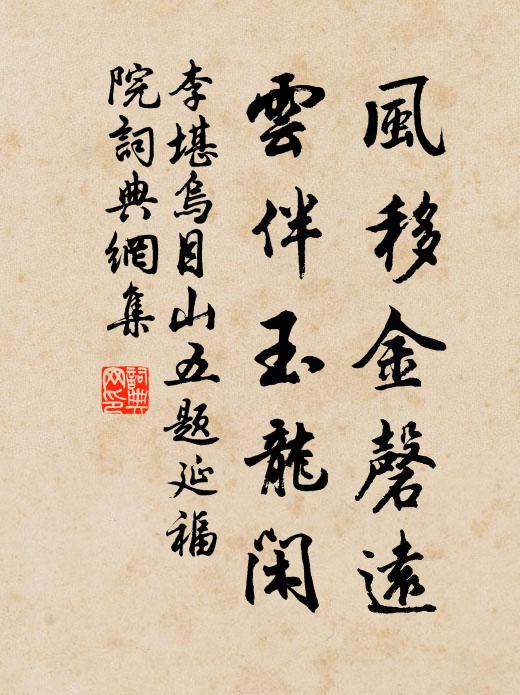 風移金磬遠
雲伴玉龍閑
李堪烏目山五題延福
院詞典網集
詞典網印